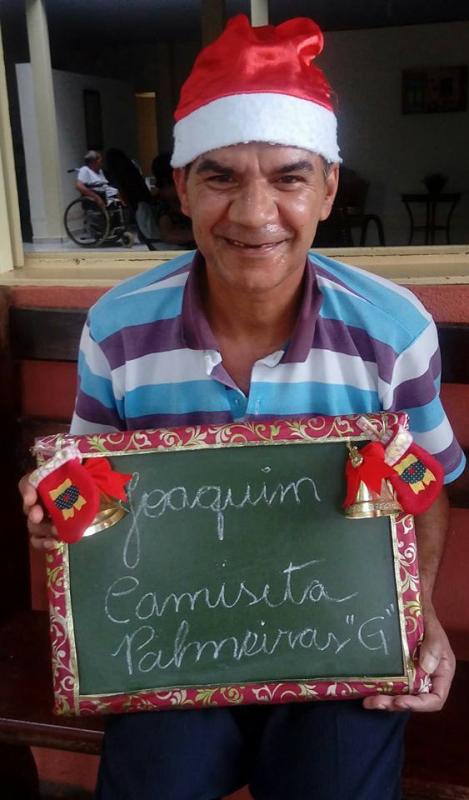 Joaquim
Camiseta
Palmeiras "G"